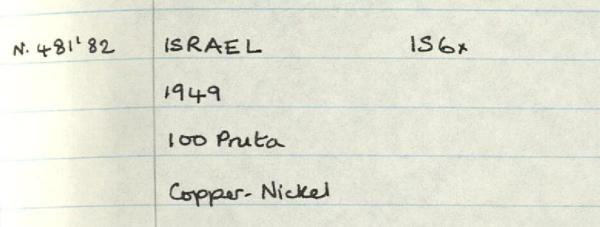 N. 481'82 ISRAEL IS6x
1949
100 Pruta
Copper-Nickel